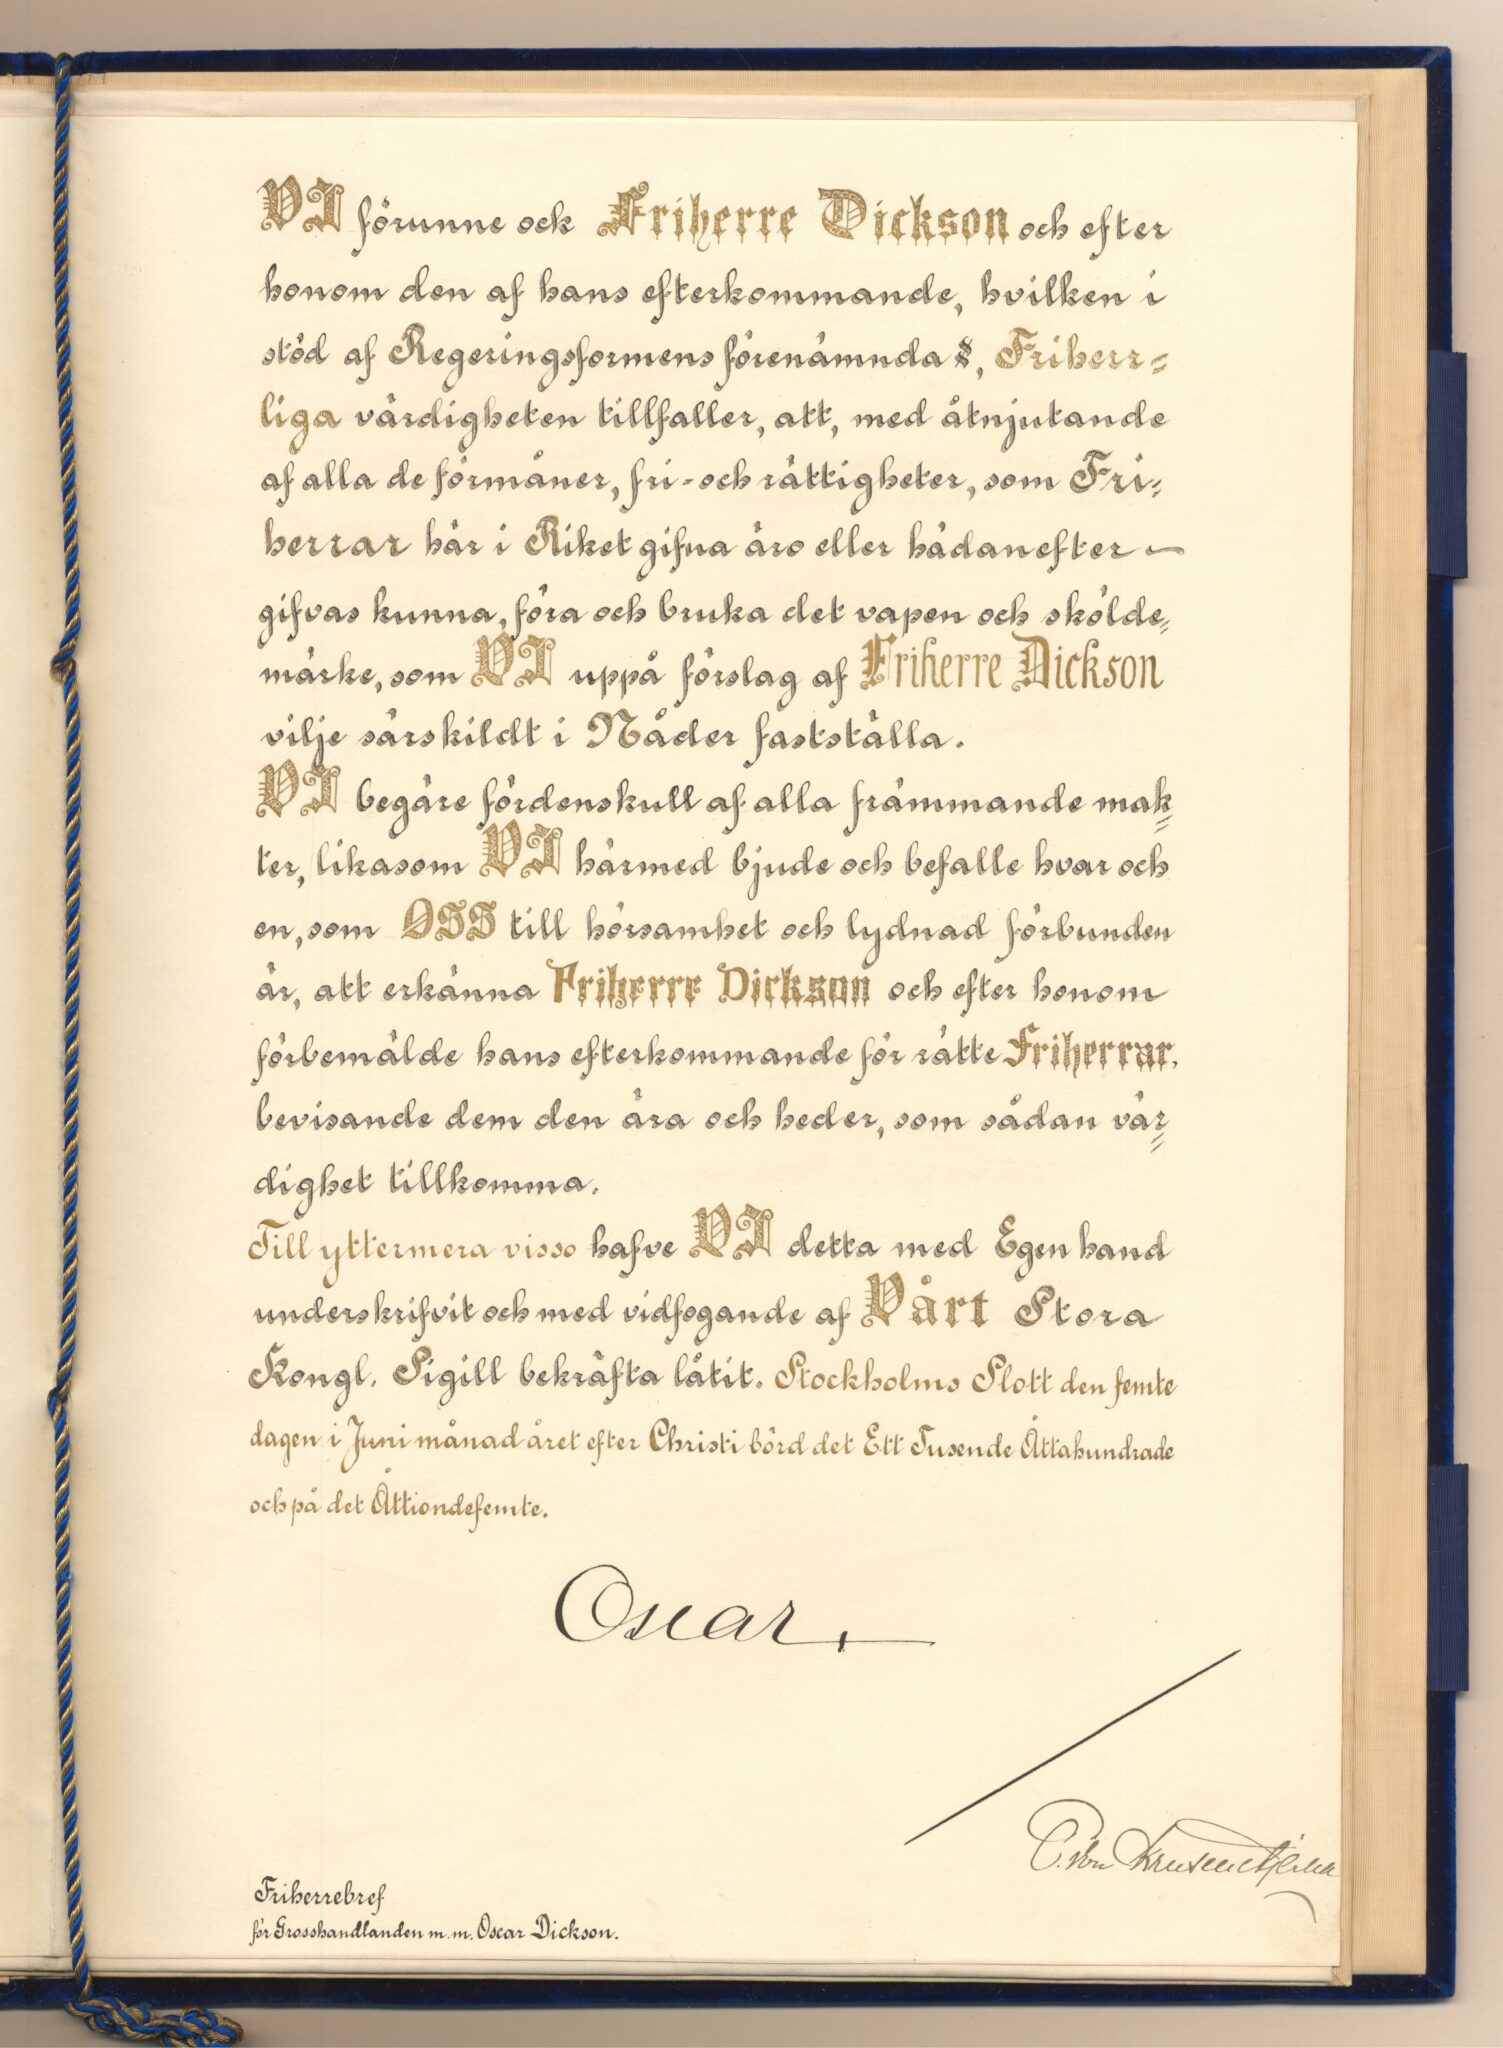 VI förunne ock Friherre Dickson och efter
honom den af hans efterkommande, hvilken i
stöd af Regeringsformens förenämnda §, Friherr=
liga värdigheten tillfaller, att, med åtnjutande
af alla de förmåner, fri- och rättigheter, som Fri=
herrar här i Riket gifna äro eller hädanefter —
gifvas kunna, föra och bruka det vapen och skölde=
märke, som VI uppå förslag af Friherre Dickson
vilje särskildt i Nåder fastställa.
VI begäre fördenskull af alla främmande mak=
ter, likasom VI härmed bjude och befalle hvar och
en, som OSS till hörsamhet och lydnad förbunden
är, att erkänna Friherre Dickson och efter honom
förbemälde hans efterkommande för rätte Friherrar,
bevisande dem den ära och heder, som sådan vär=
dighet tillkomma.
Till yttermera visso hafve VI detta med Egen hand
underskrifvit och med vidfogande af Vårt Stora
Kongl. Sigill bekräfta låtit. Stockholms Slott den femte
dagen i Juni månad året efter Christi börd det Ett Tusende Åttahundrade
och på det Åttiondefemte.
Oscar.
E. von Krusenstjerna
Friherrebref
för Grosshandlanden m.m. Oscar Dickson.